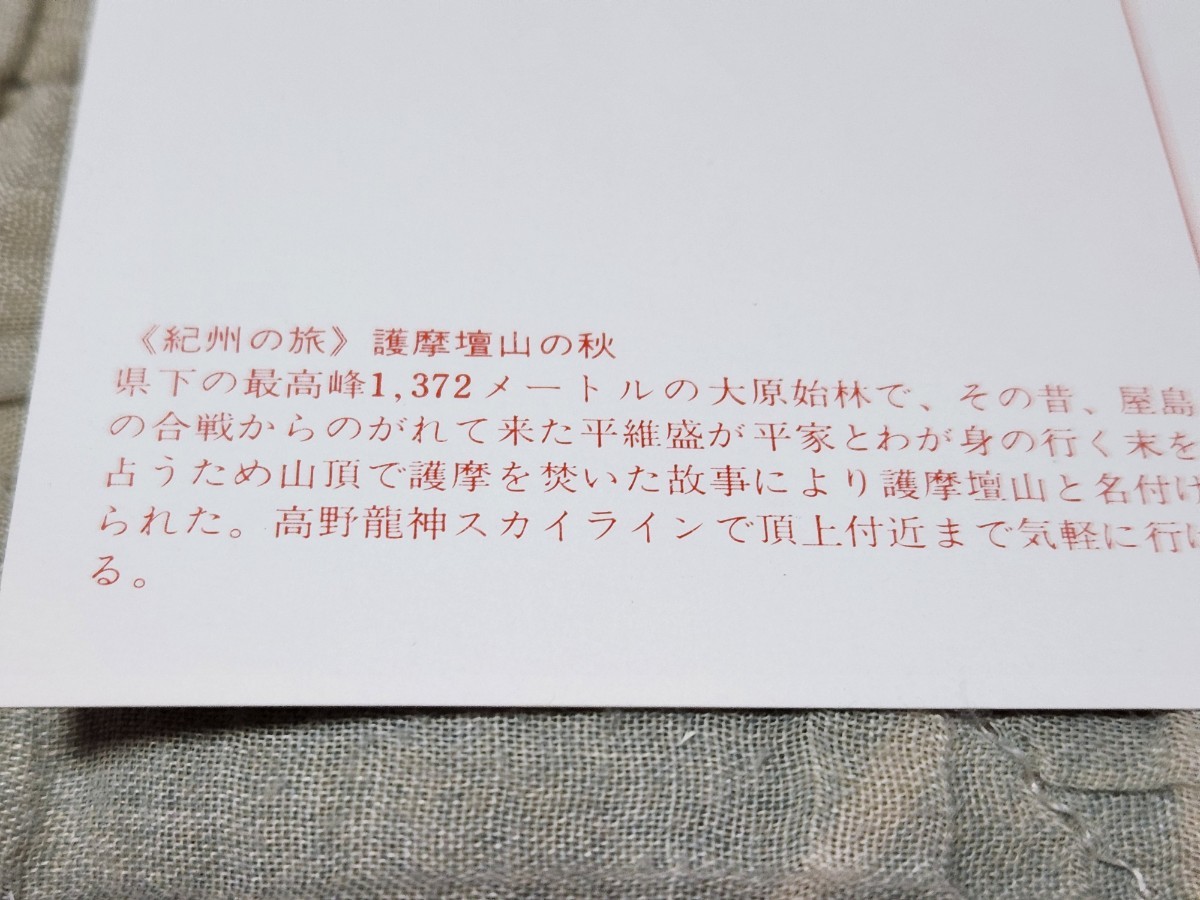 《紀州の旅》護摩壇山の秋
県下の最高峰1,372メートルの大原始林で、その昔、屋島
の合戦からのがれて来た平維盛が平家とわが身の行く末を
占うため山頂で護摩を焚いた故事により護摩壇山と名付け
られた。高野龍神スカイラインで頂上付近まで気軽に行け
る。